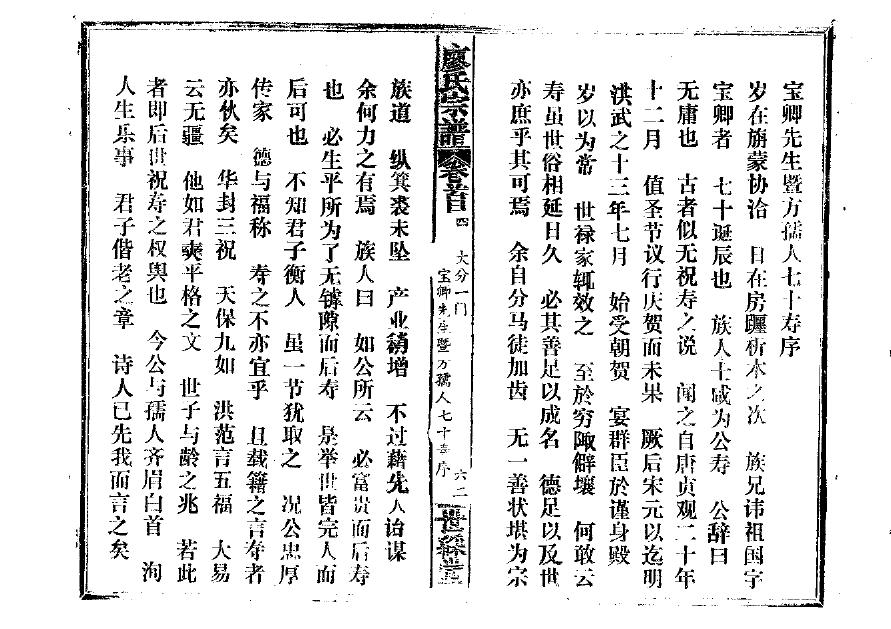 宝卿先生暨方孺人七十寿序
岁在旃蒙协洽　日在房躔析木之次　族兄讳祖国字
宝卿者　七十诞辰也　族人士咸为公寿　公辞曰
无庸也　古者似无祝寿之说　闻之自唐贞观二十年
十二月　值圣节议行庆贺而未果　厥后宋元以迄明
洪武之十三年七月　始受朝贺　宴群臣於谨身殿
岁以为常　世禄家辄效之　至於穷陬僻壤　何敢云
寿虽世俗相延日久　必其善足以成名　德足以及世
亦庶乎其可焉　余自分马徒加齿　无一善状堪为宗
廖氏宗谱　卷首　四　大分一门
宝卿先生暨方孺人七十寿序　六二
世綵堂
族道　纵箕裘未坠　产业稍增　不过藉先人诒谋
余何力之有焉　族人曰　如公所云　必富贵而后寿
也　必生平所为了无罅隙而后寿　是举世皆完人而
后可也　不知君子衡人　虽一节犹取之　况公忠厚
传家　德与福称　寿之不亦宜乎　且载籍之言寿者
亦伙矣　华封三祝　天保九如　洪范言五福　大易
云无疆　他如君奭平格之文　世子与龄之兆　若此
者即后世祝寿之权舆也　今公与孺人齐眉白首　洵
人生乐事　君子偕老之章　诗人已先我而言之矣